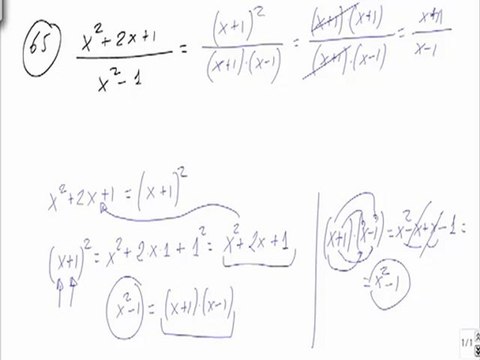 65 (x²+2x+1)/(x²-1) = (x+1)²/((x+1)·(x-1)) = ((x+1)·(x+1))/((x+1)·(x-1)) = (x+1)/(x-1)
x²+2x+1 = (x+1)²
(x+1)² = x²+2x·1+1² = x²+2x+1
x²-1 = (x+1)·(x-1)
(x+1)·(x-1) = x²-x+x-1 =
= x²-1
1/1